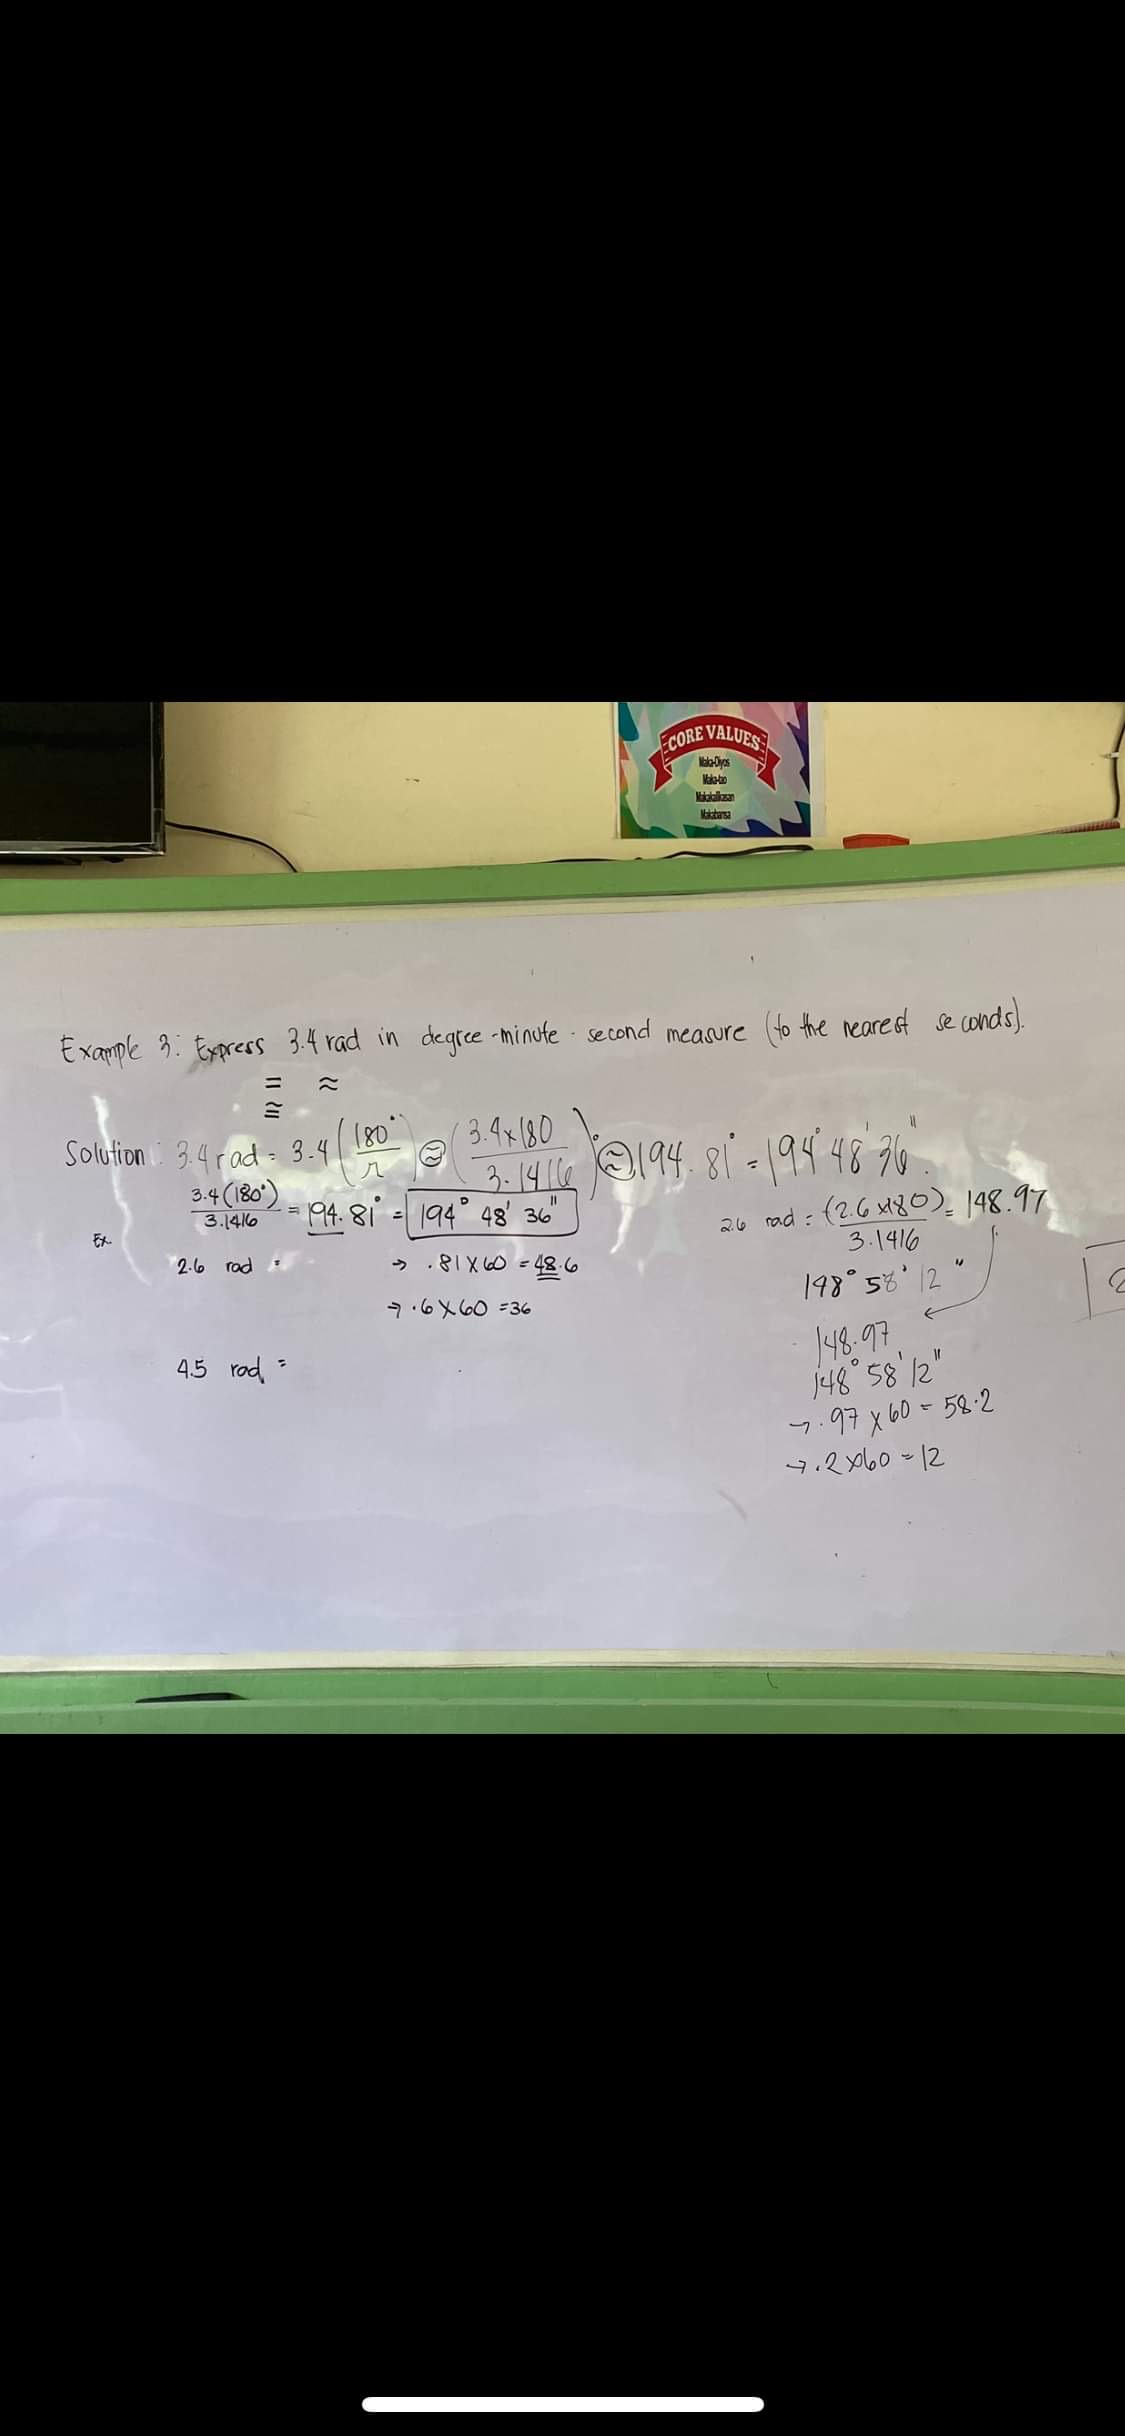 CORE VALUES
Maka-Diyos
Maka-tao
Makakalikasan
Makabansa
Example 3: Express 3.4 rad in degree-minute-second measure (to the nearest seconds).
= ≈
≅
Solution: 3.4 rad = 3.4 (180°/π) ≈ (3.4x180/3.1416)° ≈ 194.81° = 194° 48' 36".
3.4(180°)/3.1416 = 194.81° = 194° 48' 36"
Ex.
2.6 rad =
→ .81 x 60 = 48.6
→ .6 x 60 = 36
4.5 rad =
2.6 rad = (2.6 x180)/3.1416 = 148.97
148° 58' 12"
148.97
148° 58' 12"
→ .97 x 60 = 58.2
→ .2 x60 = 12